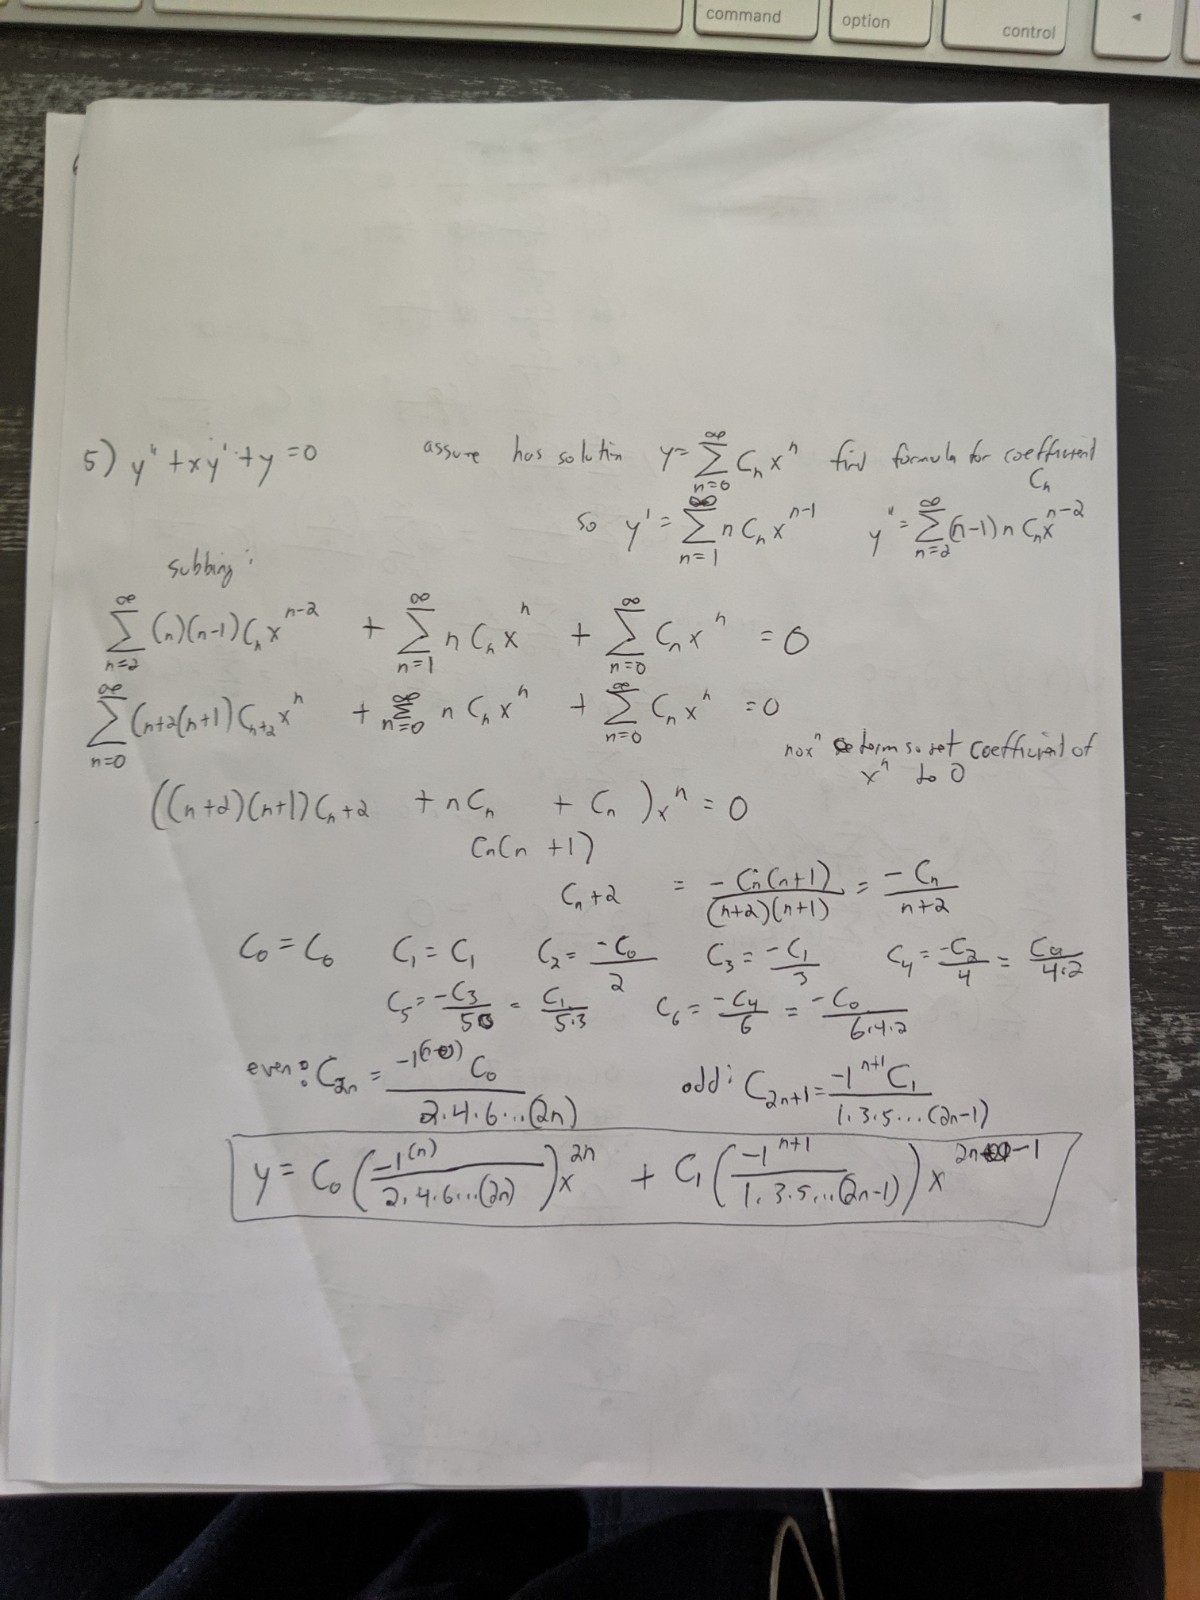 command option control
5) y" + xy' + y = 0 assure has solution y = ∑_{n=0}^{∞} C_n x^n find formula for coefficient
C_n
so y' = ∑_{n=1}^{∞} n C_n x^{n-1} y" = ∑_{n=2}^{∞} (n-1) n C_n x^{n-2}
subbing:
∑_{n=2}^{∞} (n)(n-1) C_n x^{n-2} + ∑_{n=1}^{∞} n C_n x^n + ∑_{n=0}^{∞} C_n x^n = 0
∑_{n=0}^{∞} (n+2(n+1) C_{n+2} x^n + ∑_{n=0}^{∞} n C_n x^n + ∑_{n=0}^{∞} C_n x^n = 0
no x^n term so set coefficient of
x^n to 0
((n+2)(n+1) C_{n+2} + n C_n + C_n) x^n = 0
C_n(n+1)
C_{n+2} = \frac{-C_n(n+1)}{(n+2)(n+1)} = \frac{-C_n}{n+2}
C_0 = C_0 C_1 = C_1 C_2 = \frac{-C_0}{2} C_3 = \frac{-C_1}{3} C_4 = \frac{-C_2}{4} = \frac{C_0}{4·2}
C_5 = \frac{-C_3}{5} = \frac{C_1}{5·3} C_6 = \frac{-C_4}{6} = \frac{-C_0}{6·4·2}
even: C_{2n} = \frac{-1 C_0}{2·4·6...(2n)} odd: C_{2n+1} = \frac{-1^{n+1} C_1}{1·3·5...(2n-1)}
y = C_0 (\frac{-1^{(n)}}{2·4·6...(2n)}) x^{2n} + C_1 (\frac{-1^{n+1}}{1·3·5...(2n-1)}) x^{2n-1}